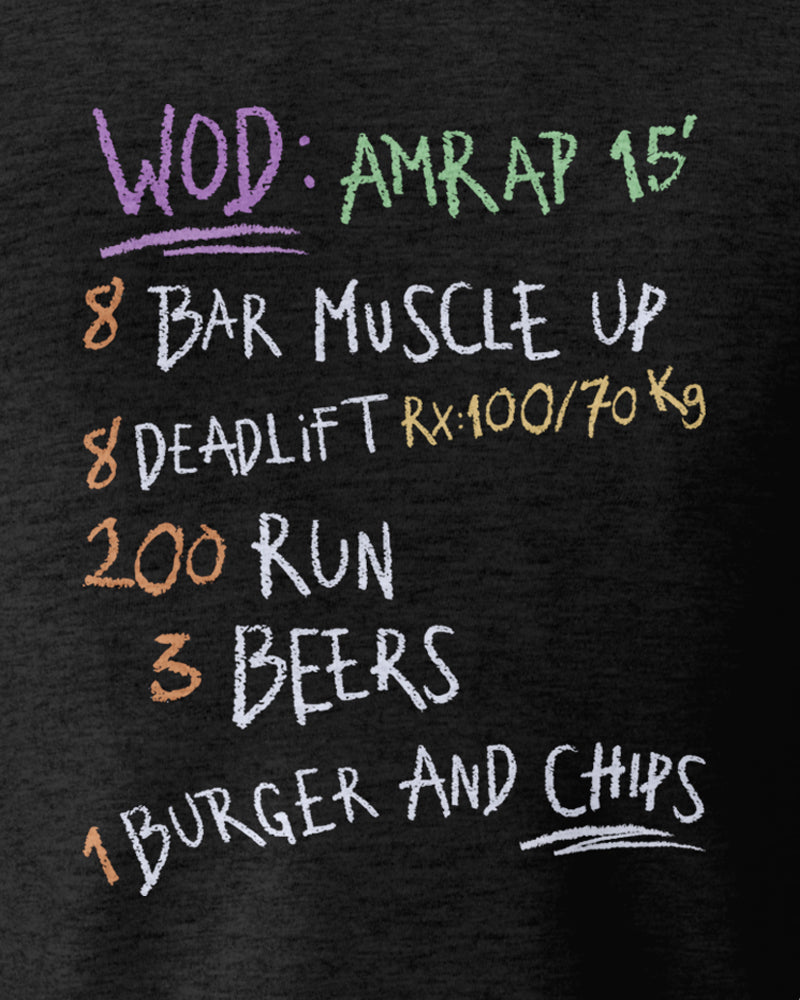 WOD: AMRAP 15'
8 BAR MUSCLE UP
8 DEADLiFT RX:100/70 Kg
200 RUN
3 BEERS
1 BURGER AND CHIPS